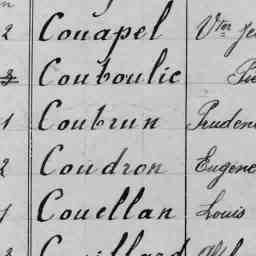 2 Couapel Vtor
Couboulic
1 Coubrun Prudent
2 Coudron Eugène
1 Couellan Louis